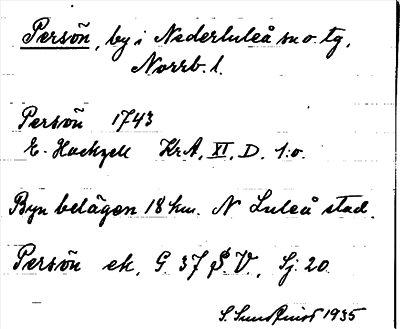 Persön, by i Nederluleå sn o. tg,
Norrb. l.
Persön 1743
E. Hackzell KrA, XI, D. 1:o.
Byn belägen 18 km. N Luleå stad.
Persön ek, G 37 S.V., Sj. 20.
S. Sundquist 1935